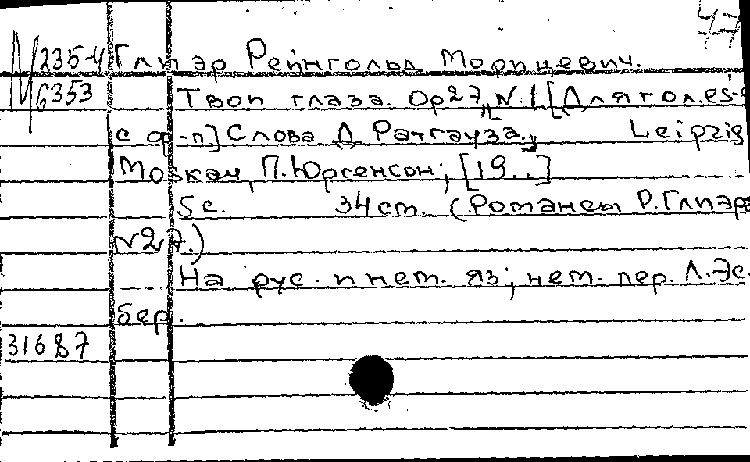 47
М 235-4 Глиэр Рейнгольд Морицевич.
6353 Твои глаза. Op 27, N. 1. [Для гол. es-
с ф-п] Слова Д. Ратгауза. Leipzig
Москау, П. Юргенсон; [19..]
5 с. 34 ст. (Романсы Р. Глиэр
N 27.)
На рус. и нем. яз; нем. пер. Л. Эс.
бер.
31687